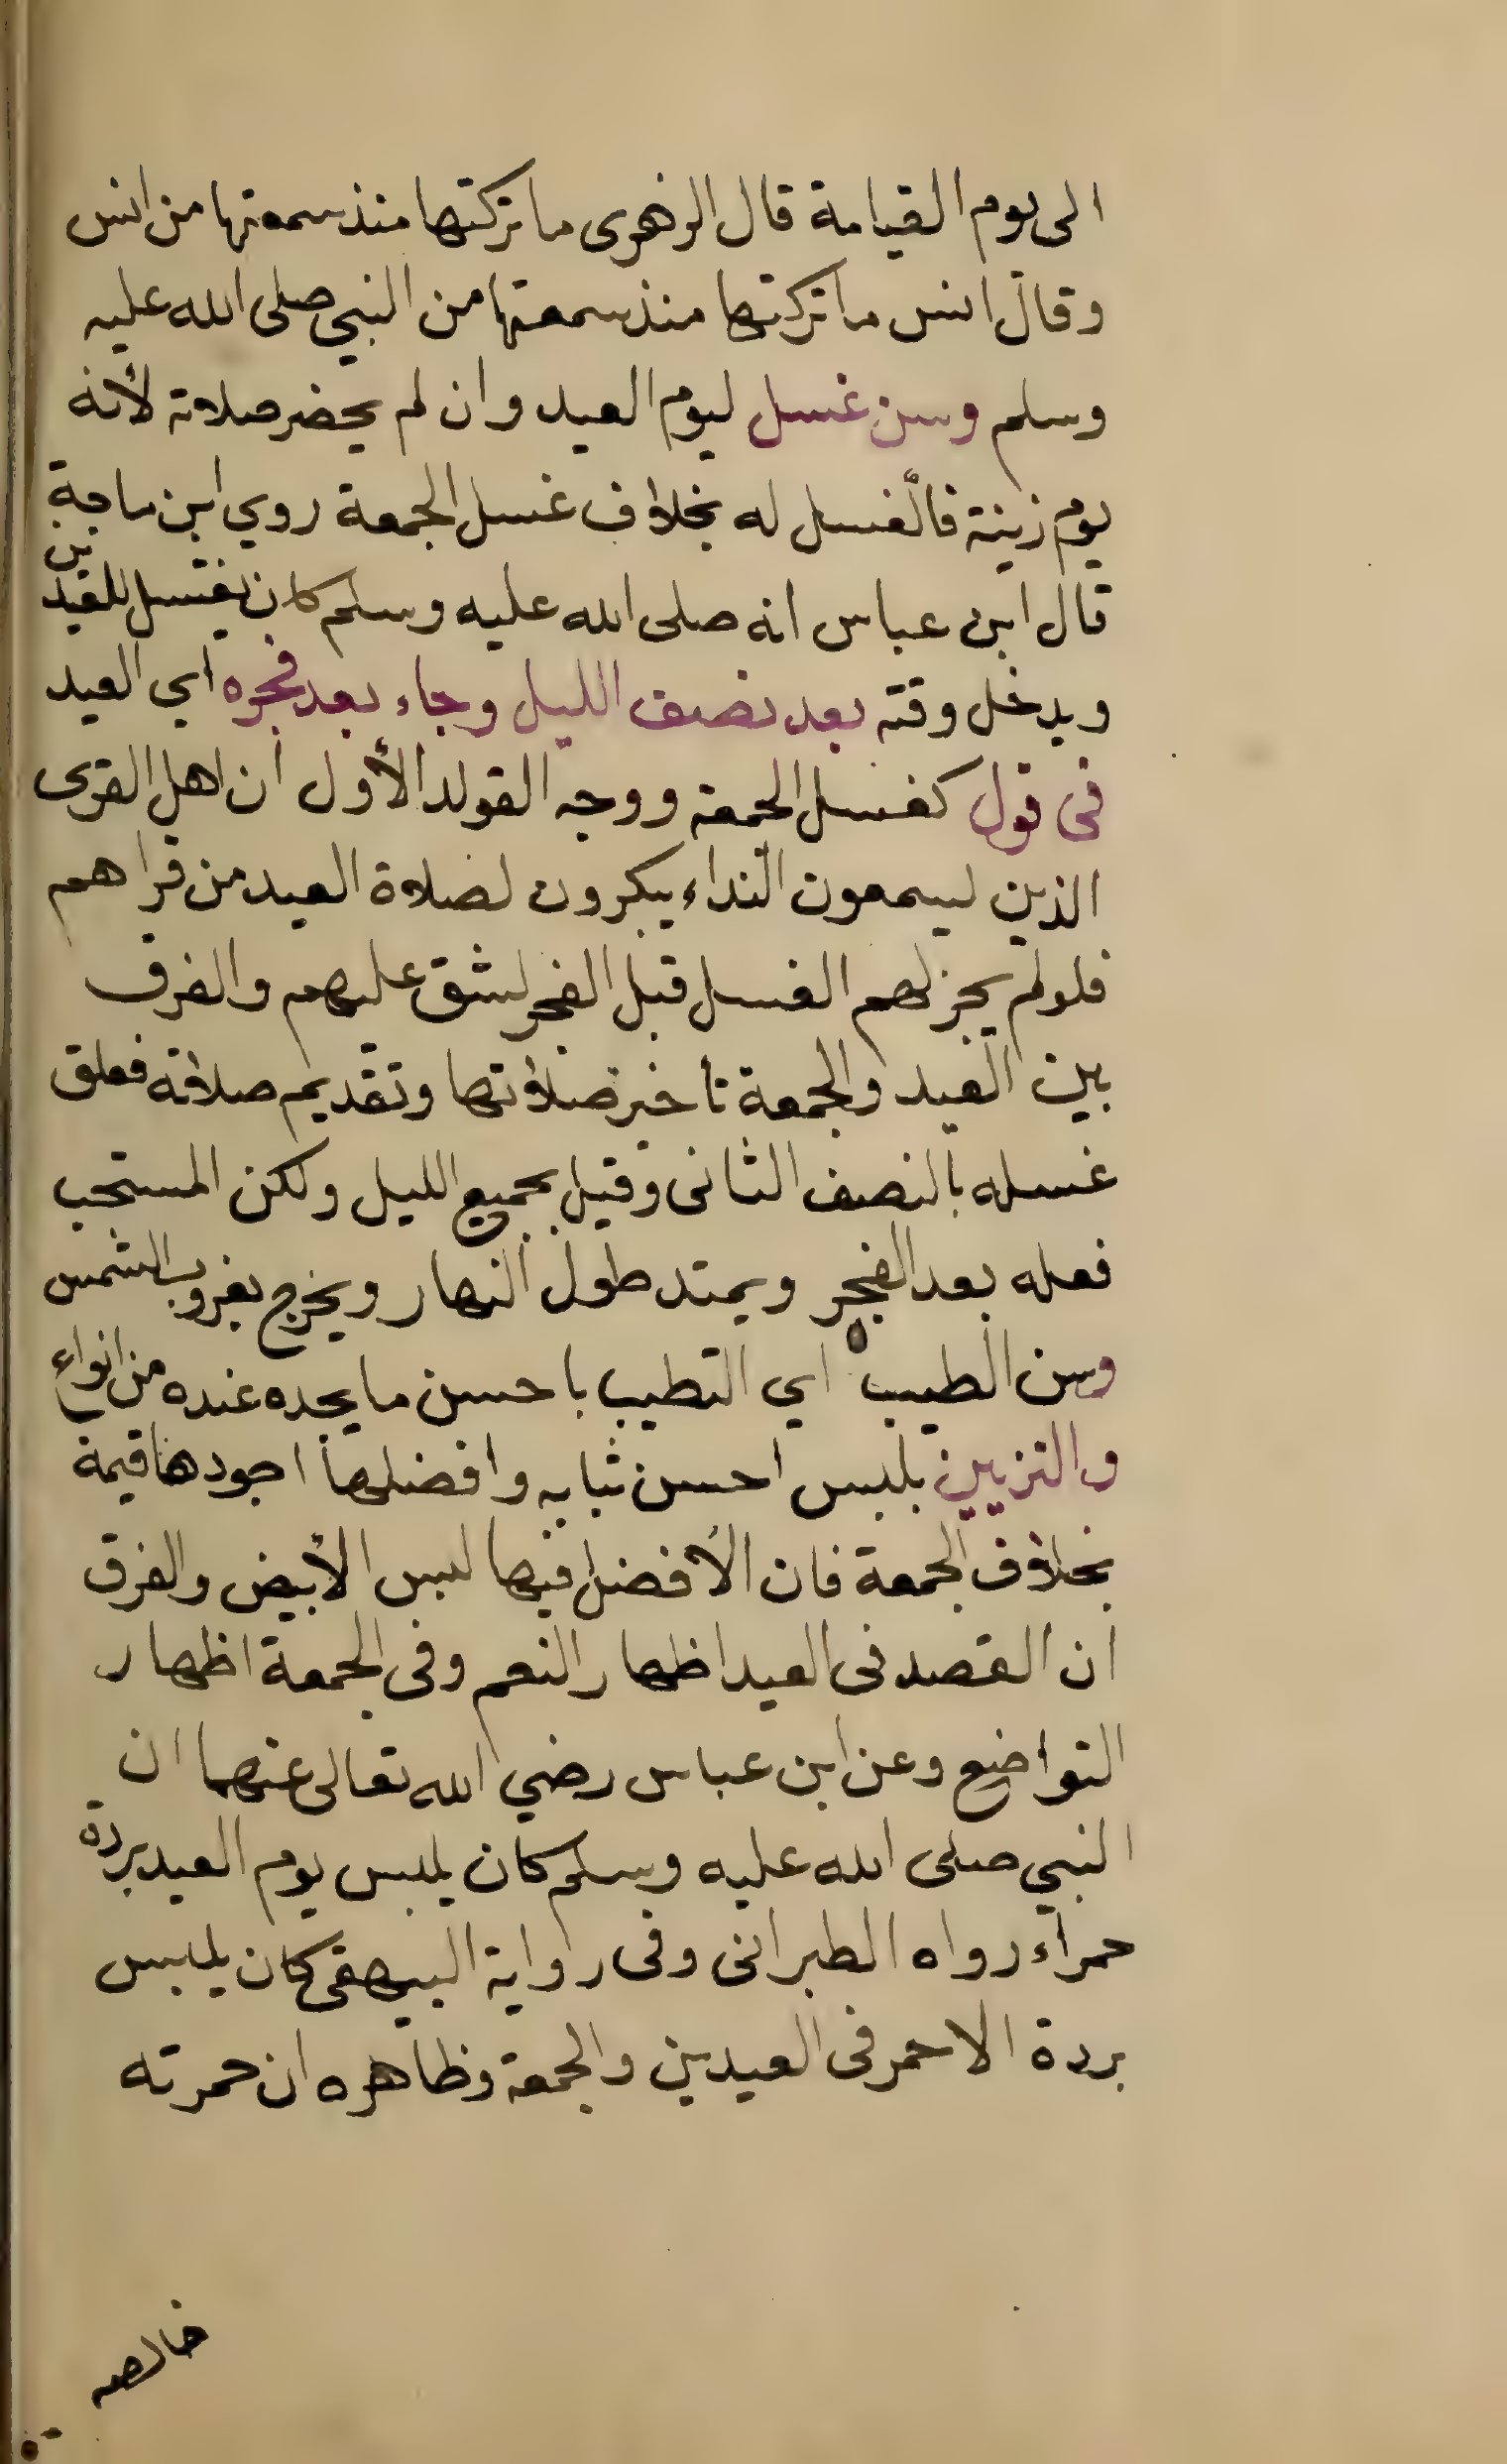 الى يوم القيامة قال الزهرى ما تركتها منذ سمعتها من انس
وقال انس ما تركتها منذ سمعتها من النبي صلى الله عليه
وسلم وسن غسل ليوم العيد وان لم يحضر صلاته لأنه
يوم زينة فالغسل له بخلاف غسل الجمعة روي ابن ماجة
قال ابن عباس انه صلى الله عليه وسلم كان يغتسل للعيدين
ويدخل وقته بعد نصف الليل وجاء بعد فجره اي العيد
فى قول كغسل الجمعة ووجه القول الأول ان اهل القرى
الذين ليسمعون النداء يبكرون لصلاة العيد من قراهم
فلو لم يجز لهم الغسل قبل الفجر لشق عليهم والفرق
بين العيد والجمعة تاخير صلاتها وتقديم صلاته فعلق
غسله بالنصف الثانى وقيل بجميع الليل ولكن المستحب
فعله بعد الفجر ويمتد طول النهار ويخرج بغروب الشمس
وسن الطيب اي التطيب باحسن ما يجده عنده من انواع
والتزيين بلبس احسن ثيابه وافضلها اجودها قيمة
بخلاف الجمعة فان الأفضل فيها لبس الأبيض والفرق
ان القصد فى العيد اظهار النعم وفى الجمعة اظهار
التواضع وعن ابن عباس رضي الله تعالى عنهما ان
النبي صلى الله عليه وسلم كان يلبس يوم العيد بردة
حمراء رواه الطبرانى وفى رواية البيهقى كان يلبس
بردة الاحمر فى العيدين والجمعة وظاهره ان حمرته
خالصه